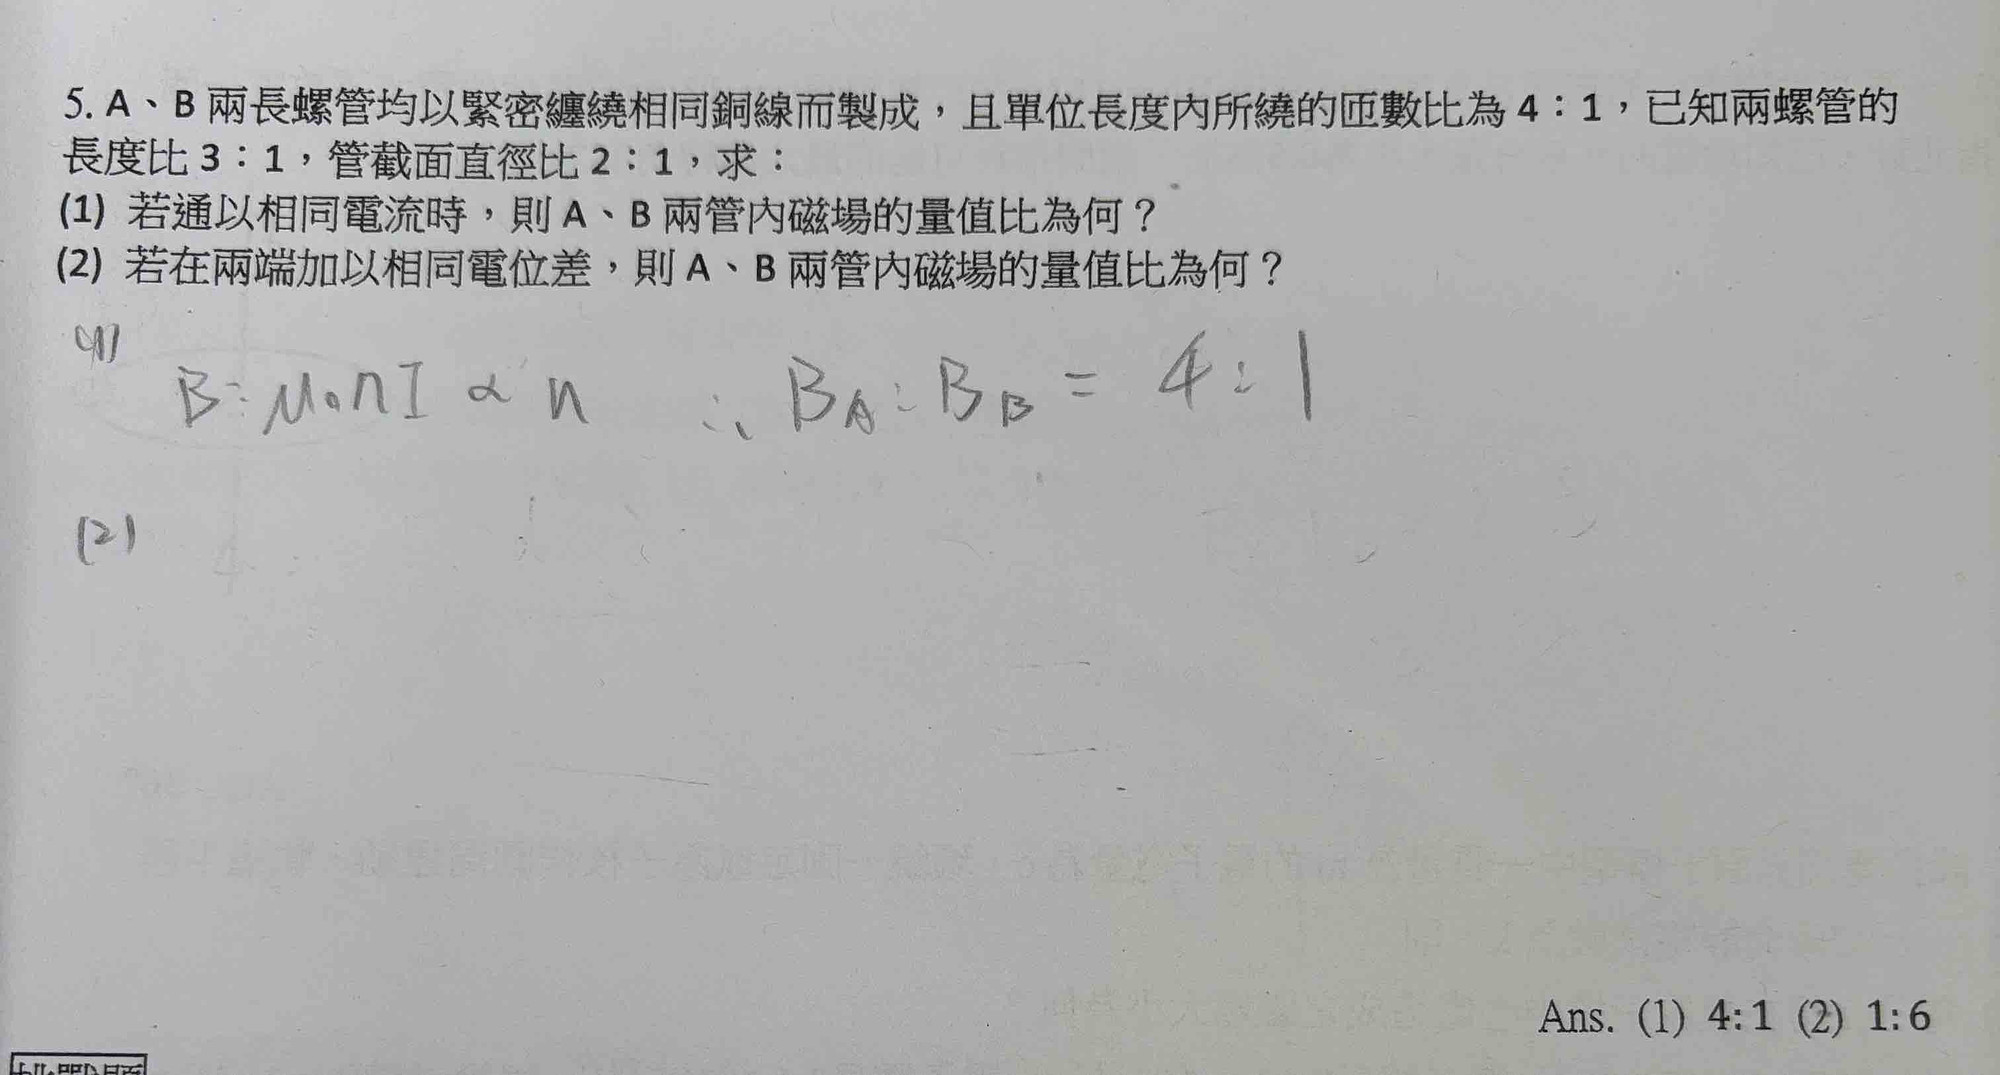 5. A、B 兩長螺管均以緊密纏繞相同銅線而製成，且單位長度內所繞的匝數比為 4：1，已知兩螺管的
長度比 3：1，管截面直徑比 2：1，求：
(1) 若通以相同電流時，則 A、B 兩管內磁場的量值比為何？
(2) 若在兩端加以相同電位差，則 A、B 兩管內磁場的量值比為何？
(1)
B=μ₀nI ∝ n ∴ B_A : B_B = 4 : 1
(2)
Ans. (1) 4:1 (2) 1:6